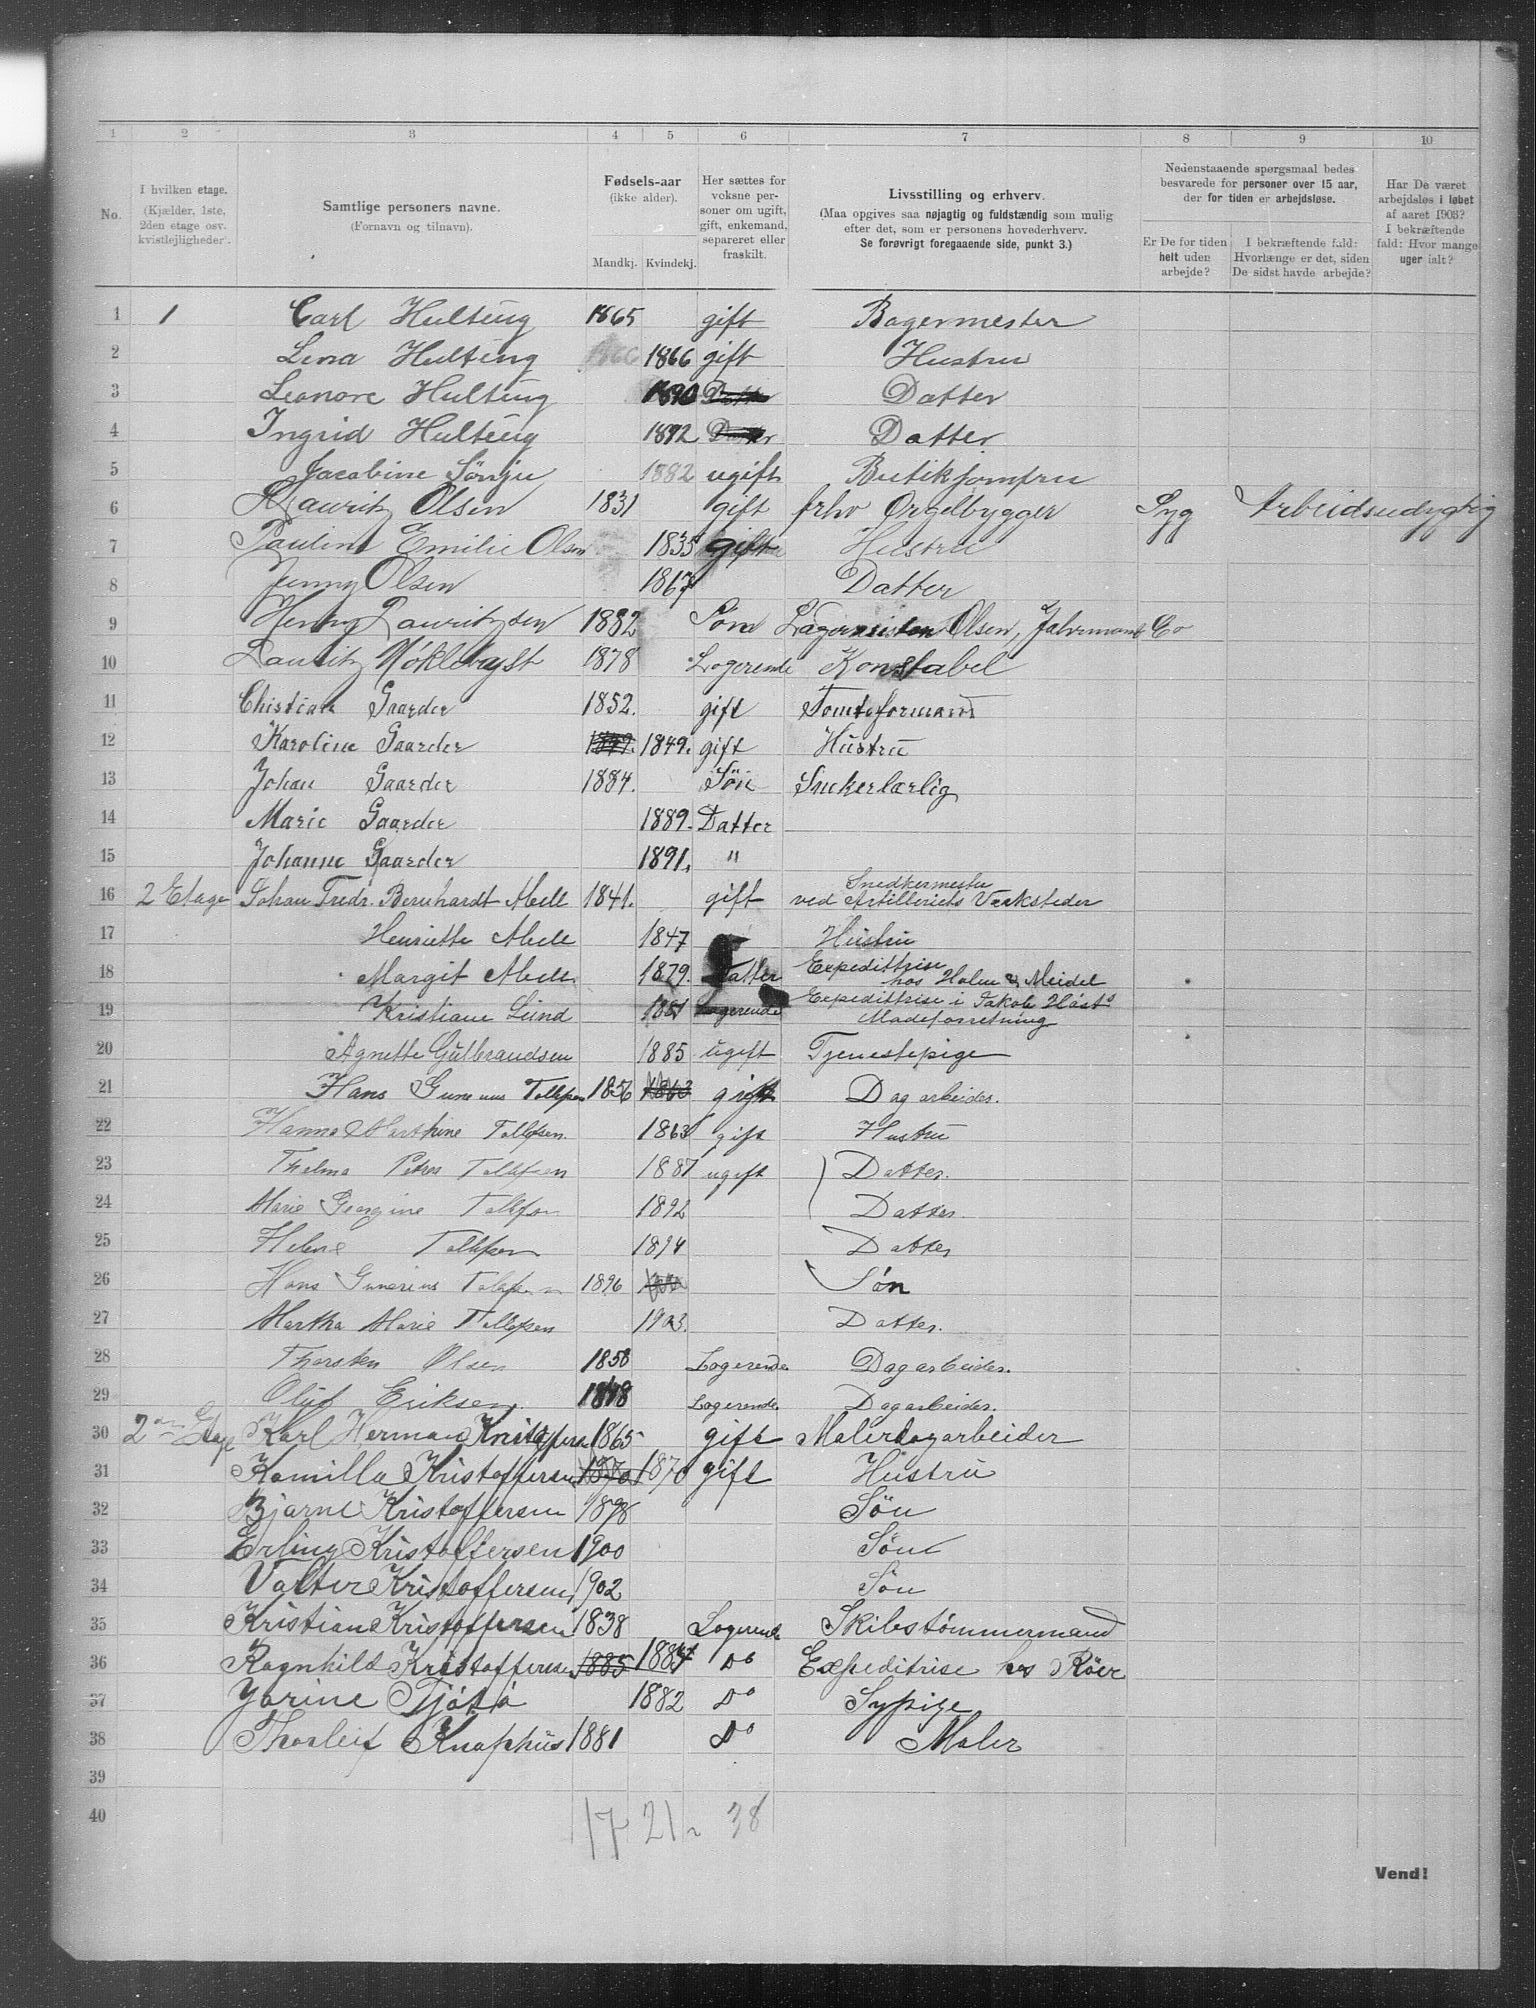 1 2 3 4 5 6 7 8 9 10
No.
I hvilken etage.
(Kjælder, 1ste,
2den etage osv.
kvistlejligheder).
Samtlige personers navne.
(Fornavn og tilnavn).
Fødsels-aar
(ikke alder).
Mandkj. Kvindekj.
Her sættes for
voksne per-
soner om ugift,
gift, enkemand,
separeret eller
fraskilt.
Livsstilling og erhverv.
(Maa opgives saa nøjagtig og fuldstændig som mulig
efter det, som er personens hovederhverv.
Se forøvrigt foregaaende side, punkt 3.)
Nedenstaaende spørgsmaal bedes
besvarede for personer over 15 aar,
der for tiden er arbejdsløse.
Er De for tiden
helt uden
arbejde?
I bekræftende fald:
Hvorlænge er det, siden
De sidst havde arbejde?
Har De været
arbejdsløs i løbet
af aaret 1903?
I bekræftende
fald: Hvor mange
uger ialt?
1 1 Carl Hulting 1865 gift Bagermester
2 Lena Hulting 1866 gift Hustru
3 Leonore Hulting 1890 Datter Datter
4 Ingrid Hulting 1892 Datter Datter
5 Jacobine Sönju 1882 ugift Butikjomfru
6 Lauritz Olsen 1831 gift frhv Orgelbygger Syg Arbeidsudygtig
7 Pauline Emilie Olsen 1835 gift Hustru
8 Jenny Olsen 1867 Datter
9 Henry Lauritzsen 1882 Sön Olsen, & Co
10 Lauritz Nøklebyst 1878 Logerende Konstabel
11 Christian Gaarder 1852. gift Tomteformand
12 Karoline Gaarder 1849. 1849. gift Hustru
13 Johan Gaarder 1884. Sön Snekerlærlig
14 Marie Gaarder 1889. Datter
15 Johanne Gaarder 1891. "
16 2 Etage Johan Fredr. Bernhardt Abell 1841. gift Snedkermester
ved Artilleriets Værksteder
17 Henriette Abell 1847 Hustru
18 Margit Abell 1879. Datter Expeditrise
hos Holm & Meidel
19 Kristiane Lund 1881 Logerende Expeditrise i Jakob Høsts
Madeforretning
20 Agnette Gulbrandsen 1885 ugift Tjenestepige
21 Hans Gunerius Tollefsen 1856 1863 gift Dagarbeider.
22 Hanna Marthine Tollefsen. 1863 gift Hustru
23 Thelma Petra Tollefsen 1887 ugift Datter.
24 Marie Georgine Tollefsen 1892 Datter.
25 Helene Tollefsen 1894 Datter
26 Hans Gunerius Tollefsen 1896 Søn
27 Martha Marie Tollefsen 1903. Datter.
28 Thorsten Olsen 1858 Logerende Dagarbeider.
29 Oluf Eriksen. 1848 Logerende Dagarbeider.
30 2den Etage Karl Herman Kristoffersen 1865 gift Malerdagarbeider
31 Kamilla Kristoffersen 1870 1870 gift Hustru
32 Bjarne Kristoffersen 1898 Sön
33 Erling Kristoffersen 1900 Sön
34 Valter Kristoffersen 1902 Sön
35 Kristian Kristoffersen 1838 Logerende Skibstømmermand
36 Ragnhild Kristoffersen 1885 1884 Do Expeditrise hos Röer
37 Jorine Tjøtø 1882 Do Sypige
38 Thorleif Knaphus 1881 Do Maler
39
40
17 21 38
Vend!